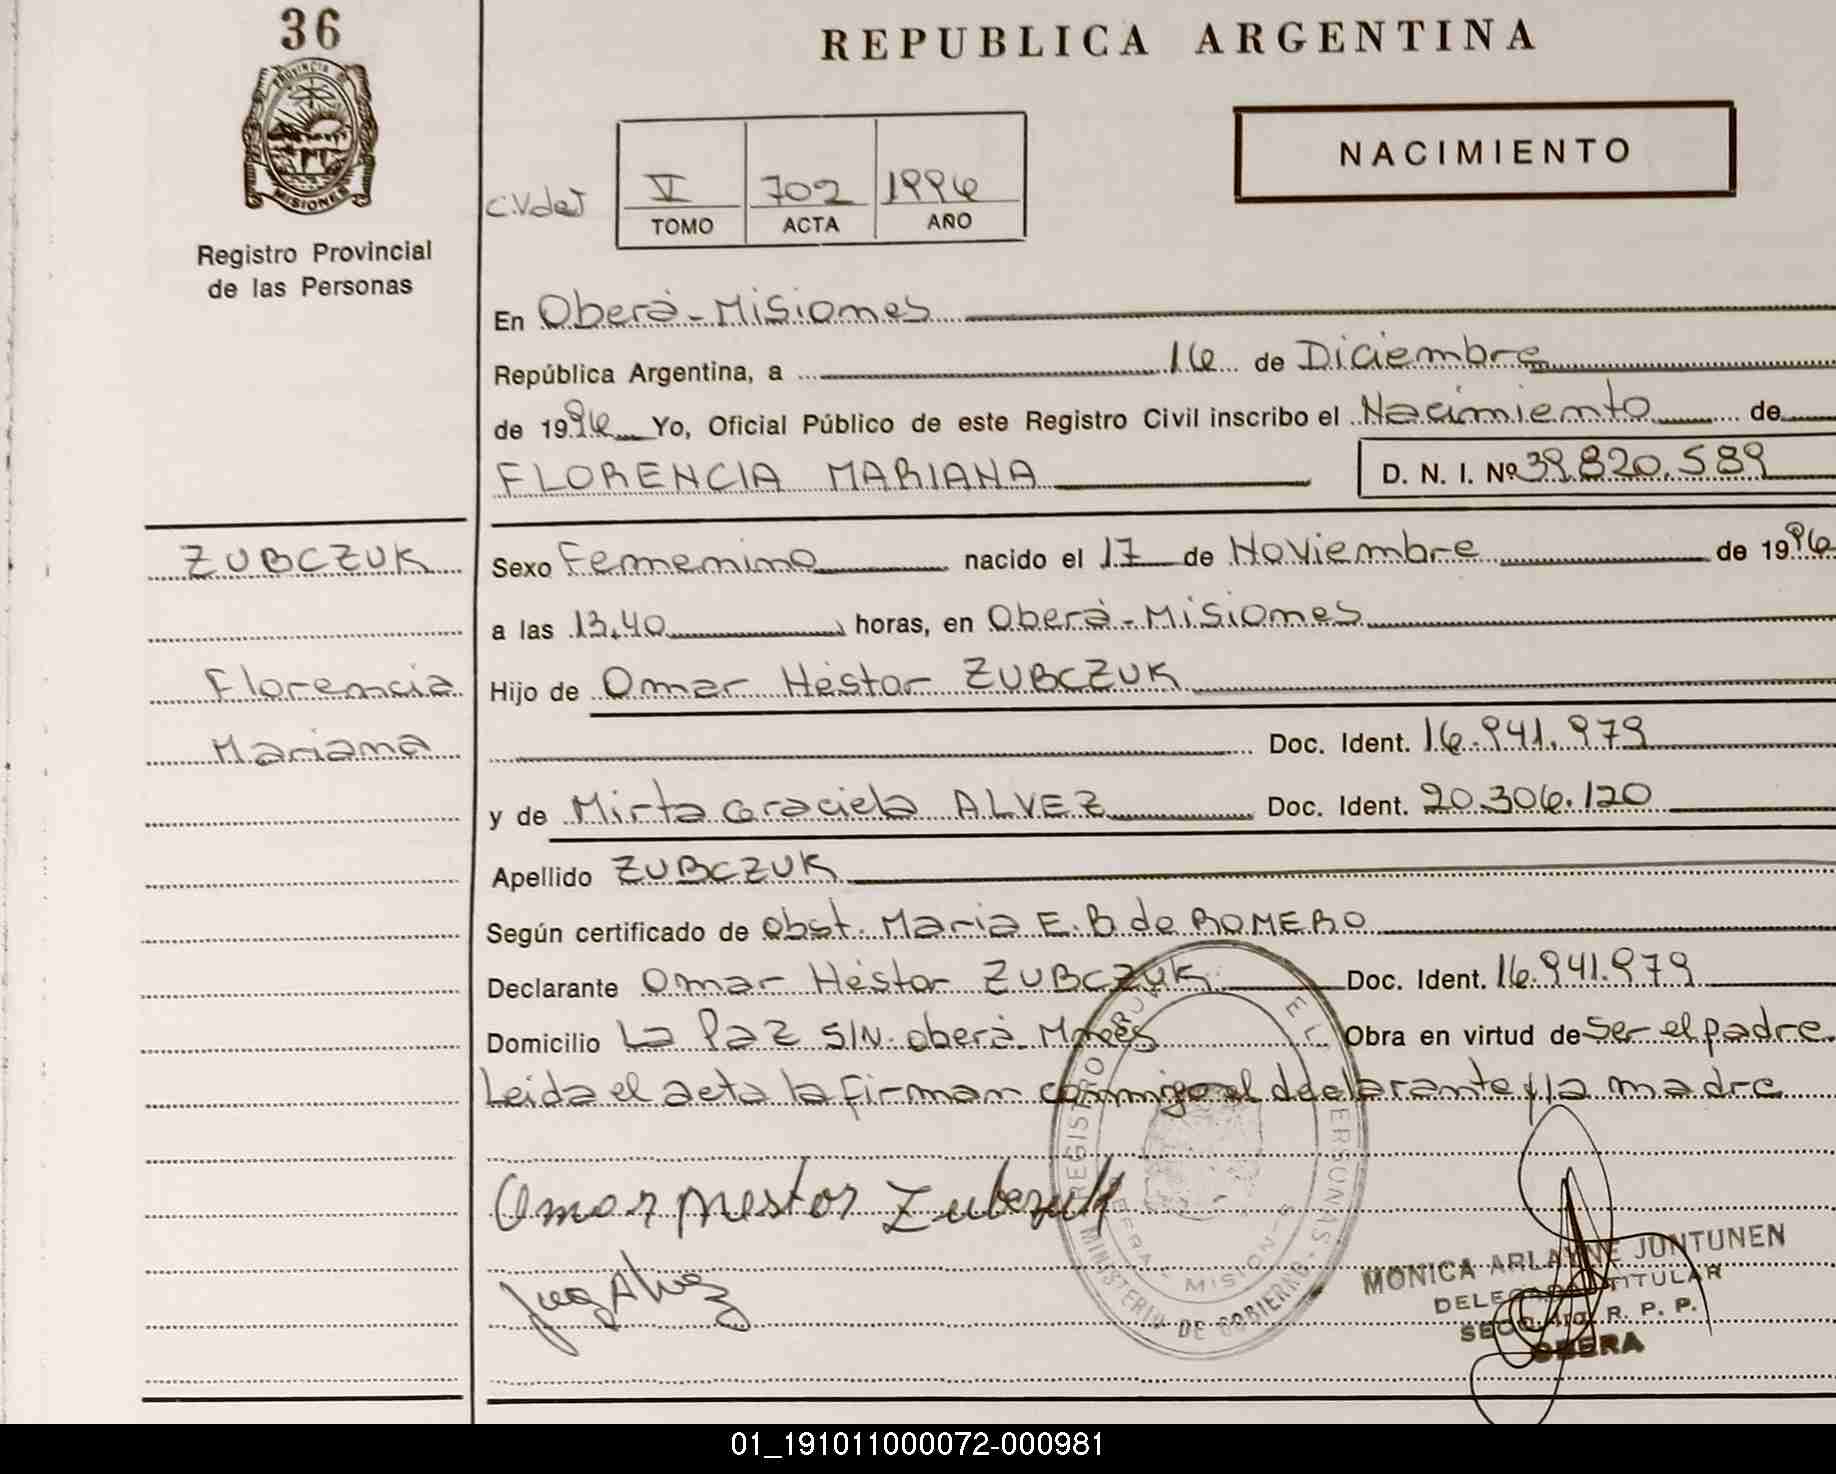 36
REPUBLICA ARGENTINA
PROVINCIA DE
MISIONES
Registro Provincial
de las Personas
NACIMIENTO
C.V de J
V 702 1996
TOMO ACTA AÑO
En Oberá-Misiones
República Argentina, a 16 de Diciembre
de 1996 Yo, Oficial Público de este Registro Civil inscribo el Nacimiento de
FLORENCIA MARIANA D. N. I. Nº 39.820.589
ZUBCZUK
Florencia
Mariana
Sexo Femenino nacido el 17 de Noviembre de 1996
a las 13,40 horas, en Oberá-Misiones
Hijo de Omar Néstor ZUBCZUK
Doc. Ident. 16.941.979
y de Mirta Graciela ALVEZ Doc. Ident. 20.306.120
Apellido ZUBCZUK
Según certificado de Obst. Maria E. B de ROMERO
Declarante Omar Néstor ZUBCZUK Doc. Ident. 16.941.979
Domicilio La Paz S/N. Oberá. Mnes Obra en virtud de Ser el padre.
Leida el acta la firman conmigo el declarante y la madre
Omar Nestor Zubczuk
Alvez
REGISTRO
MINISTERIO DE GOBIERNO
MONICA ARLAYNE JUNTUNEN
TITULAR
R. P. P.
OBERA
01_191011000072-000981